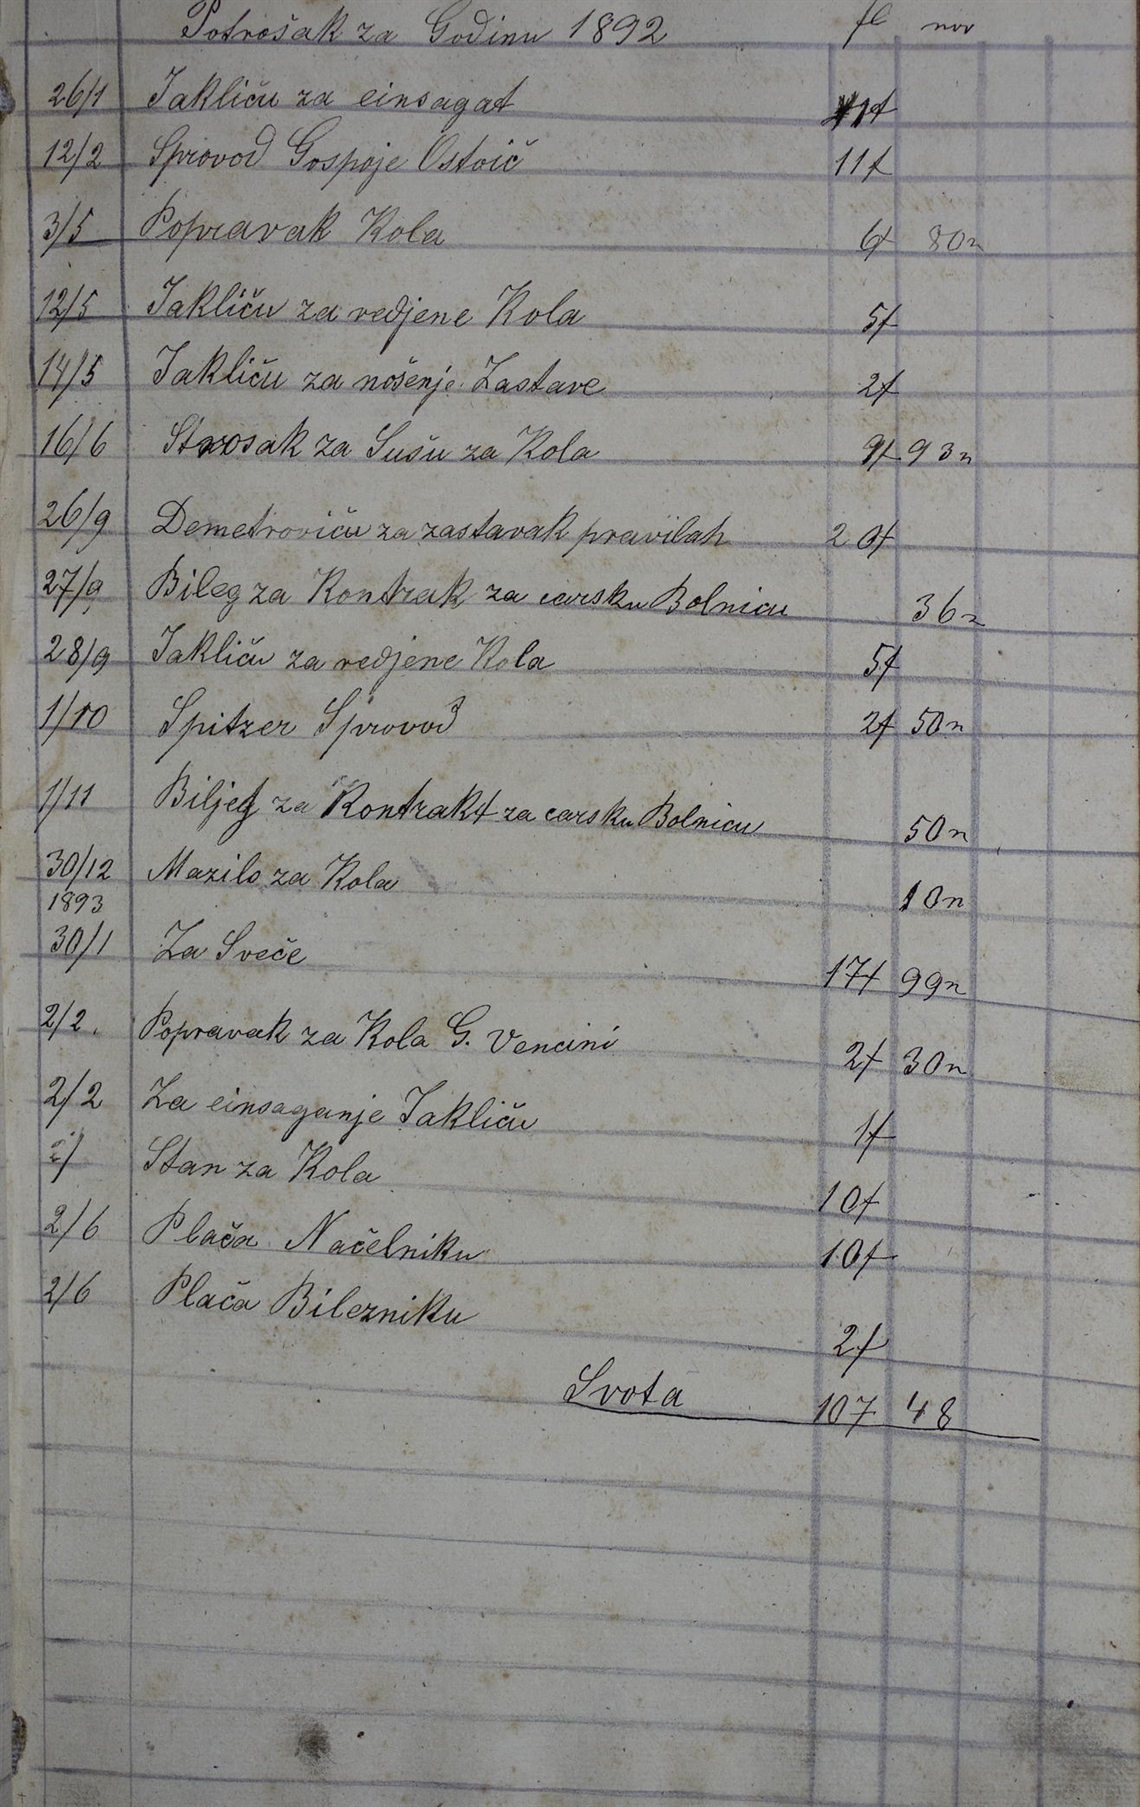 Potrošak za Godinu 1892 fl nov
26/1 Jakliču za einsagat 1f
12/2 Sprovod Gospoje Ostoič 11f
3/5 Popravak Kola 6f 80n
12/5 Jakliču za vedjene Kola 5f
14/5 Jakliču za nošenje Zastave 2f
16/6 Strosak za Šušu za Kola 9f 93n
26/9 Demetroviču za zastavak pravilah 20f
27/9 Bileg za Kontrak za carsku Bolnicu 36n
28/9 Jakliču za vedjene Kola 5f
1/10 Spitzer Sprovod 2f 50n
1/11 Biljeg za Kontrakt za carsku Bolnicu 50n
30/12 Mazilo za Kola 10n
1893
30/1 Za Sveče 17f 99n
2/2. Popravak za Kola G. Vencini 2f 30n
2/2 Za einsaganje Jakliču 1f
Stan za Kola 10f
2/6 Plača Načelniku 10f
2/6 Plača Bilezniku 2f
Svota 107 48